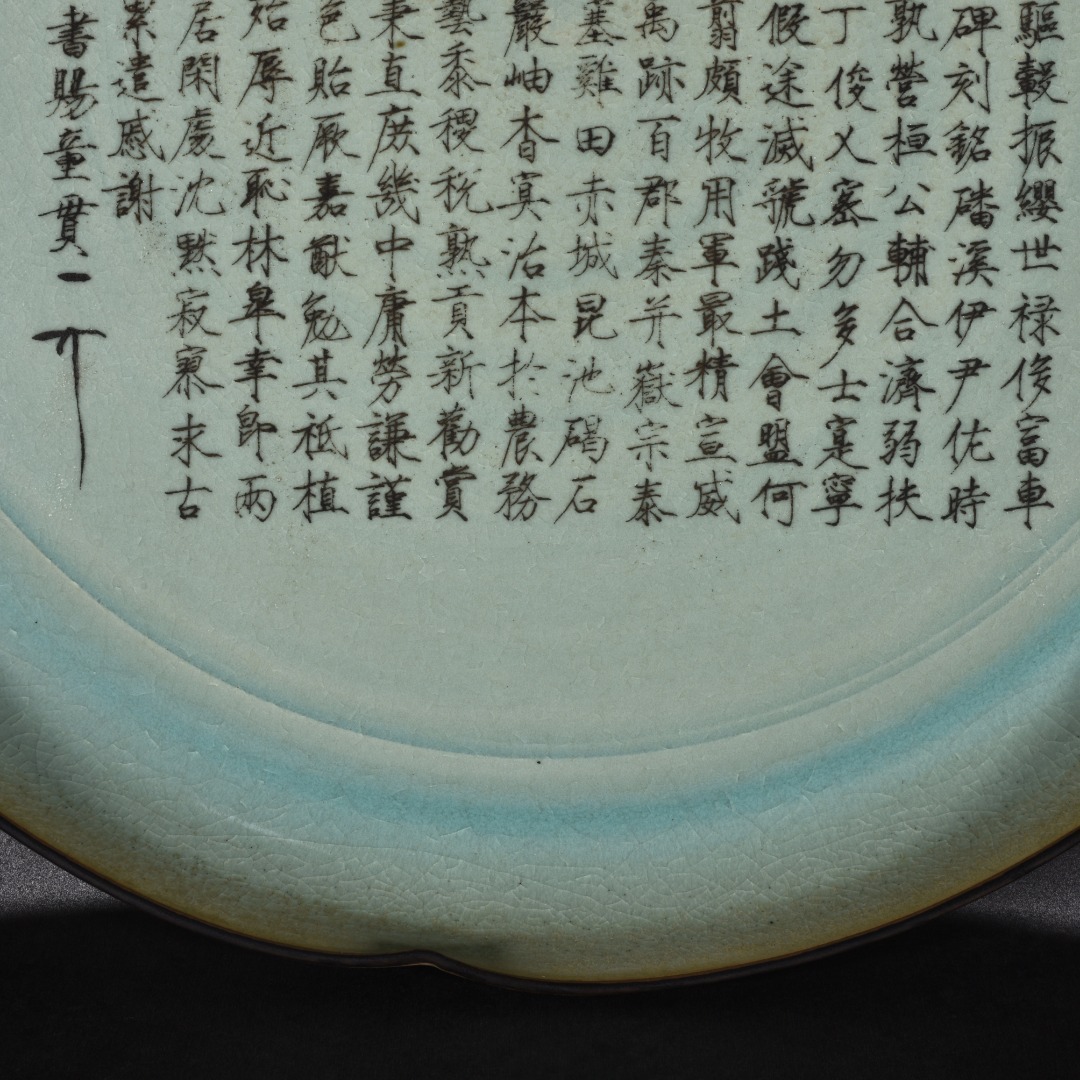 驅轂振纓世祿俊富車
碑刻銘磻溪伊尹佐時
孰營桓公輔合濟弱扶
丁俊乂密勿多士寔寧
假途滅虢踐土會盟何
翦頗牧用軍最精宣威
禹跡百郡秦并嶽宗泰
塞雞田赤城昆池碣石
巖岫杳冥治本於農務
藝黍稷稅熟貢新勸賞
秉直庶幾中庸勞謙謹
色貽厥嘉猷勉其祗植
殆辱近恥林皋幸即兩
居閑處沈默寂寥求古
累遣慼謝
書賜童貫